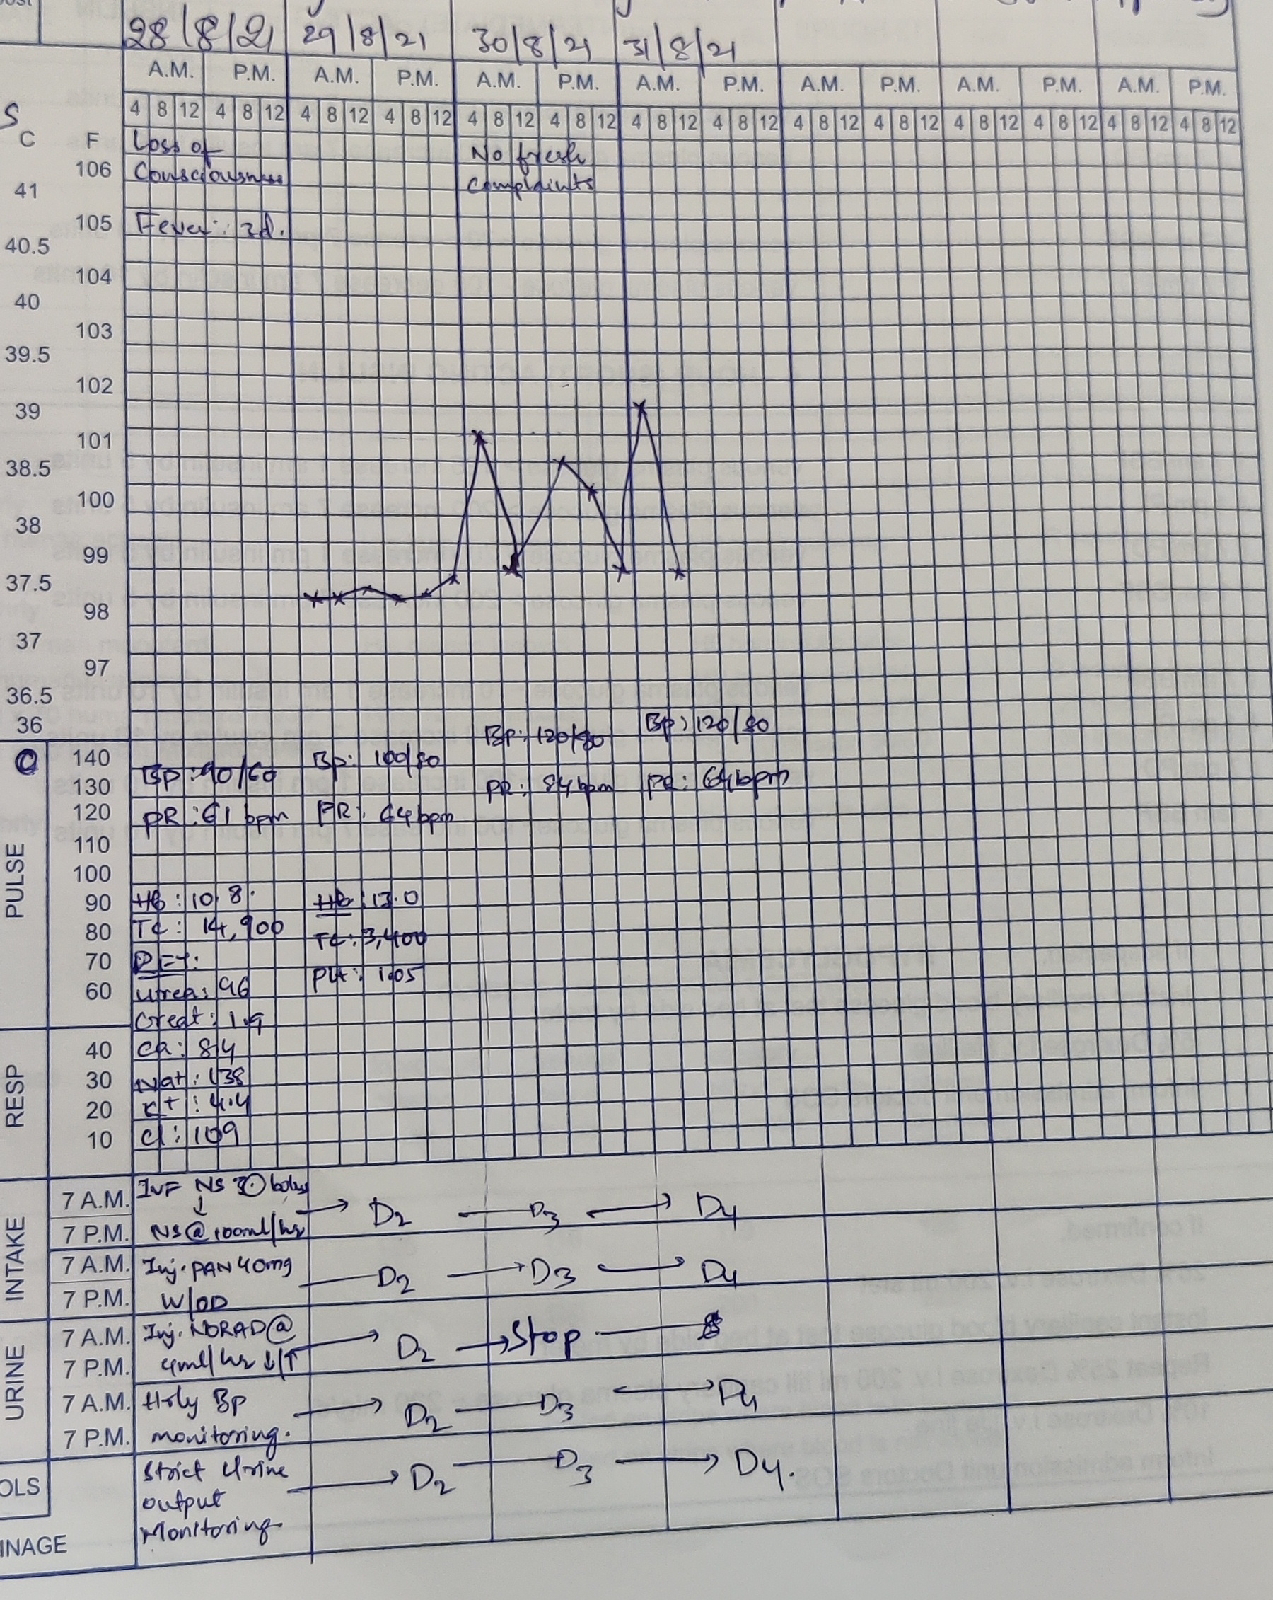 28/8/21 29/8/21 30/8/21 31/8/21
A.M. P.M. A.M. P.M. A.M. P.M. A.M. P.M. A.M. P.M. A.M. P.M. A.M. P.M.
4 8 12 4 8 12 4 8 12 4 8 12 4 8 12 4 8 12 4 8 12 4 8 12 4 8 12 4 8 12 4 8 12 4 8 12 4 8 12 4 8 12
C F Loss of No fresh
106 Consciousness complaints
41
105 Fever: 3d.
40.5
104
40
103
39.5
102
39
101
38.5
100
38
99
37.5
98
37
97
36.5
36
140 BP: 90/60 BP: 100/80 BP: 120/80 BP: 120/80
130
120 PR: 61 bpm PR: 64 bpm PR: 84 bpm PR: 64 bpm
110
PULSE
100
90 Hb: 10.8. Hb: 13.0
80 TC: 14,900 TC: 3,400
70 RFT: Plt: 1.05
60 urea: 96
Creat: 1.9
RESP
40 Ca: 8.4
30 Na+: 138
20 K+: 4.4
10 Cl: 109
INTAKE
7 A.M. INF NS bolus
↓
7 P.M. NS @ 100ml/hr → D2 D3 → D4
7 A.M. Inj. PAN 40mg
7 P.M. IV/OD D2 → D3 → D4
URINE
7 A.M. Inj. NORAD @
7 P.M. 4ml/hr ↓/↑ → D2 → Stop
7 A.M. Hrly BP
7 P.M. monitoring. → D2 D3 → D4
OLS
Strict Urine
output → D2 D3 → D4.
INAGE Monitoring